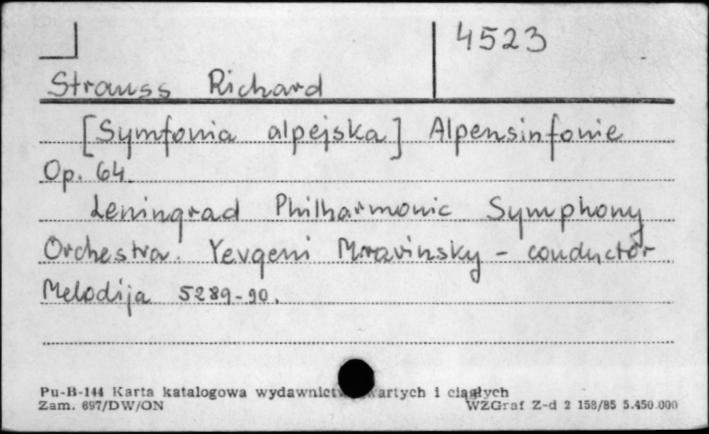 4523
Strauss Richard
[Symfonia alpejska] Alpensinfonie
Op. 64.
Leningrad Philharmonic Symphony
Orchestra. Yevgeni Mravinsky - conductor
Melodija 5289-90.
Pu-B-144 Karta katalogowa wydawnictw zwartych i ciągłych
Zam. 697/DW/ON WZGraf Z-d 2 158/85 5.450.000